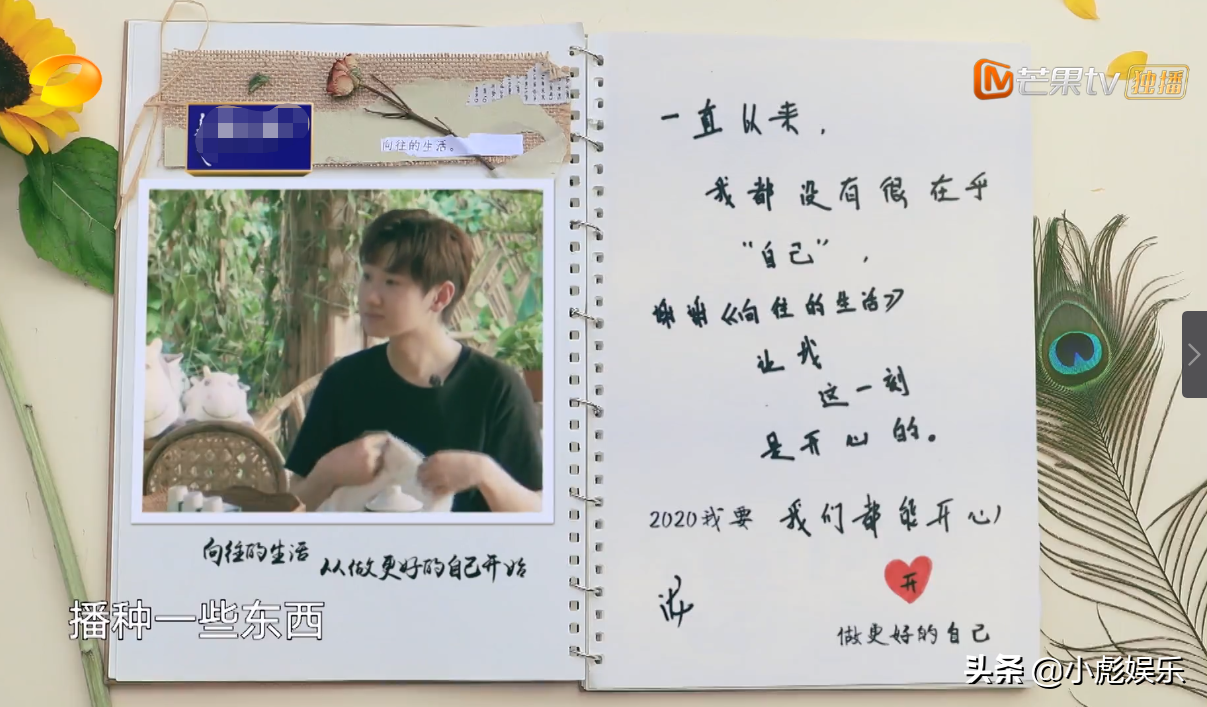 芒果tv 独播
向往的生活。
一直以来，
我都没有很在乎
“自己”，
谢谢《向往的生活》
让我
这一刻
是开心的。
2020我要 我们都能开心
开
做更好的自己
向往的生活
从做更好的自己开始
播种一些东西
头条 @小彪娱乐